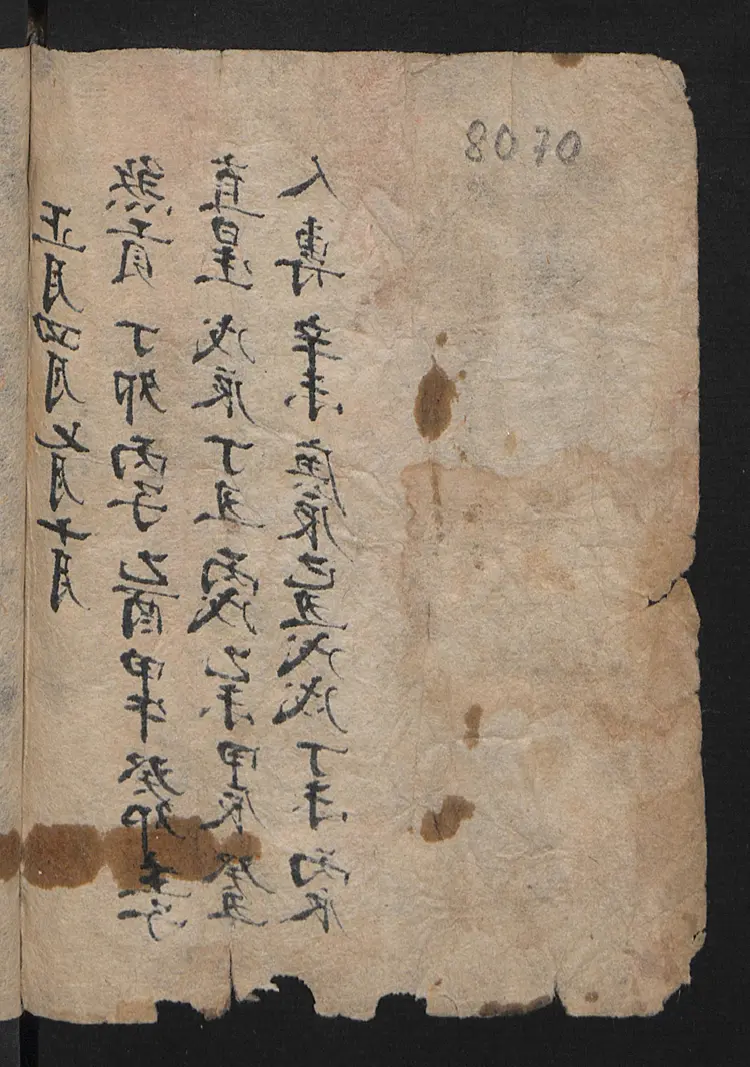 8070
正月四月七月十月
煞貢 丁卯 丙子 乙酉 甲午 癸卯 壬子
直星 戊辰 丁丑 丙戌 乙未 甲辰 癸丑
人專 辛未 庚辰 己丑 戊戌 丁未 丙辰